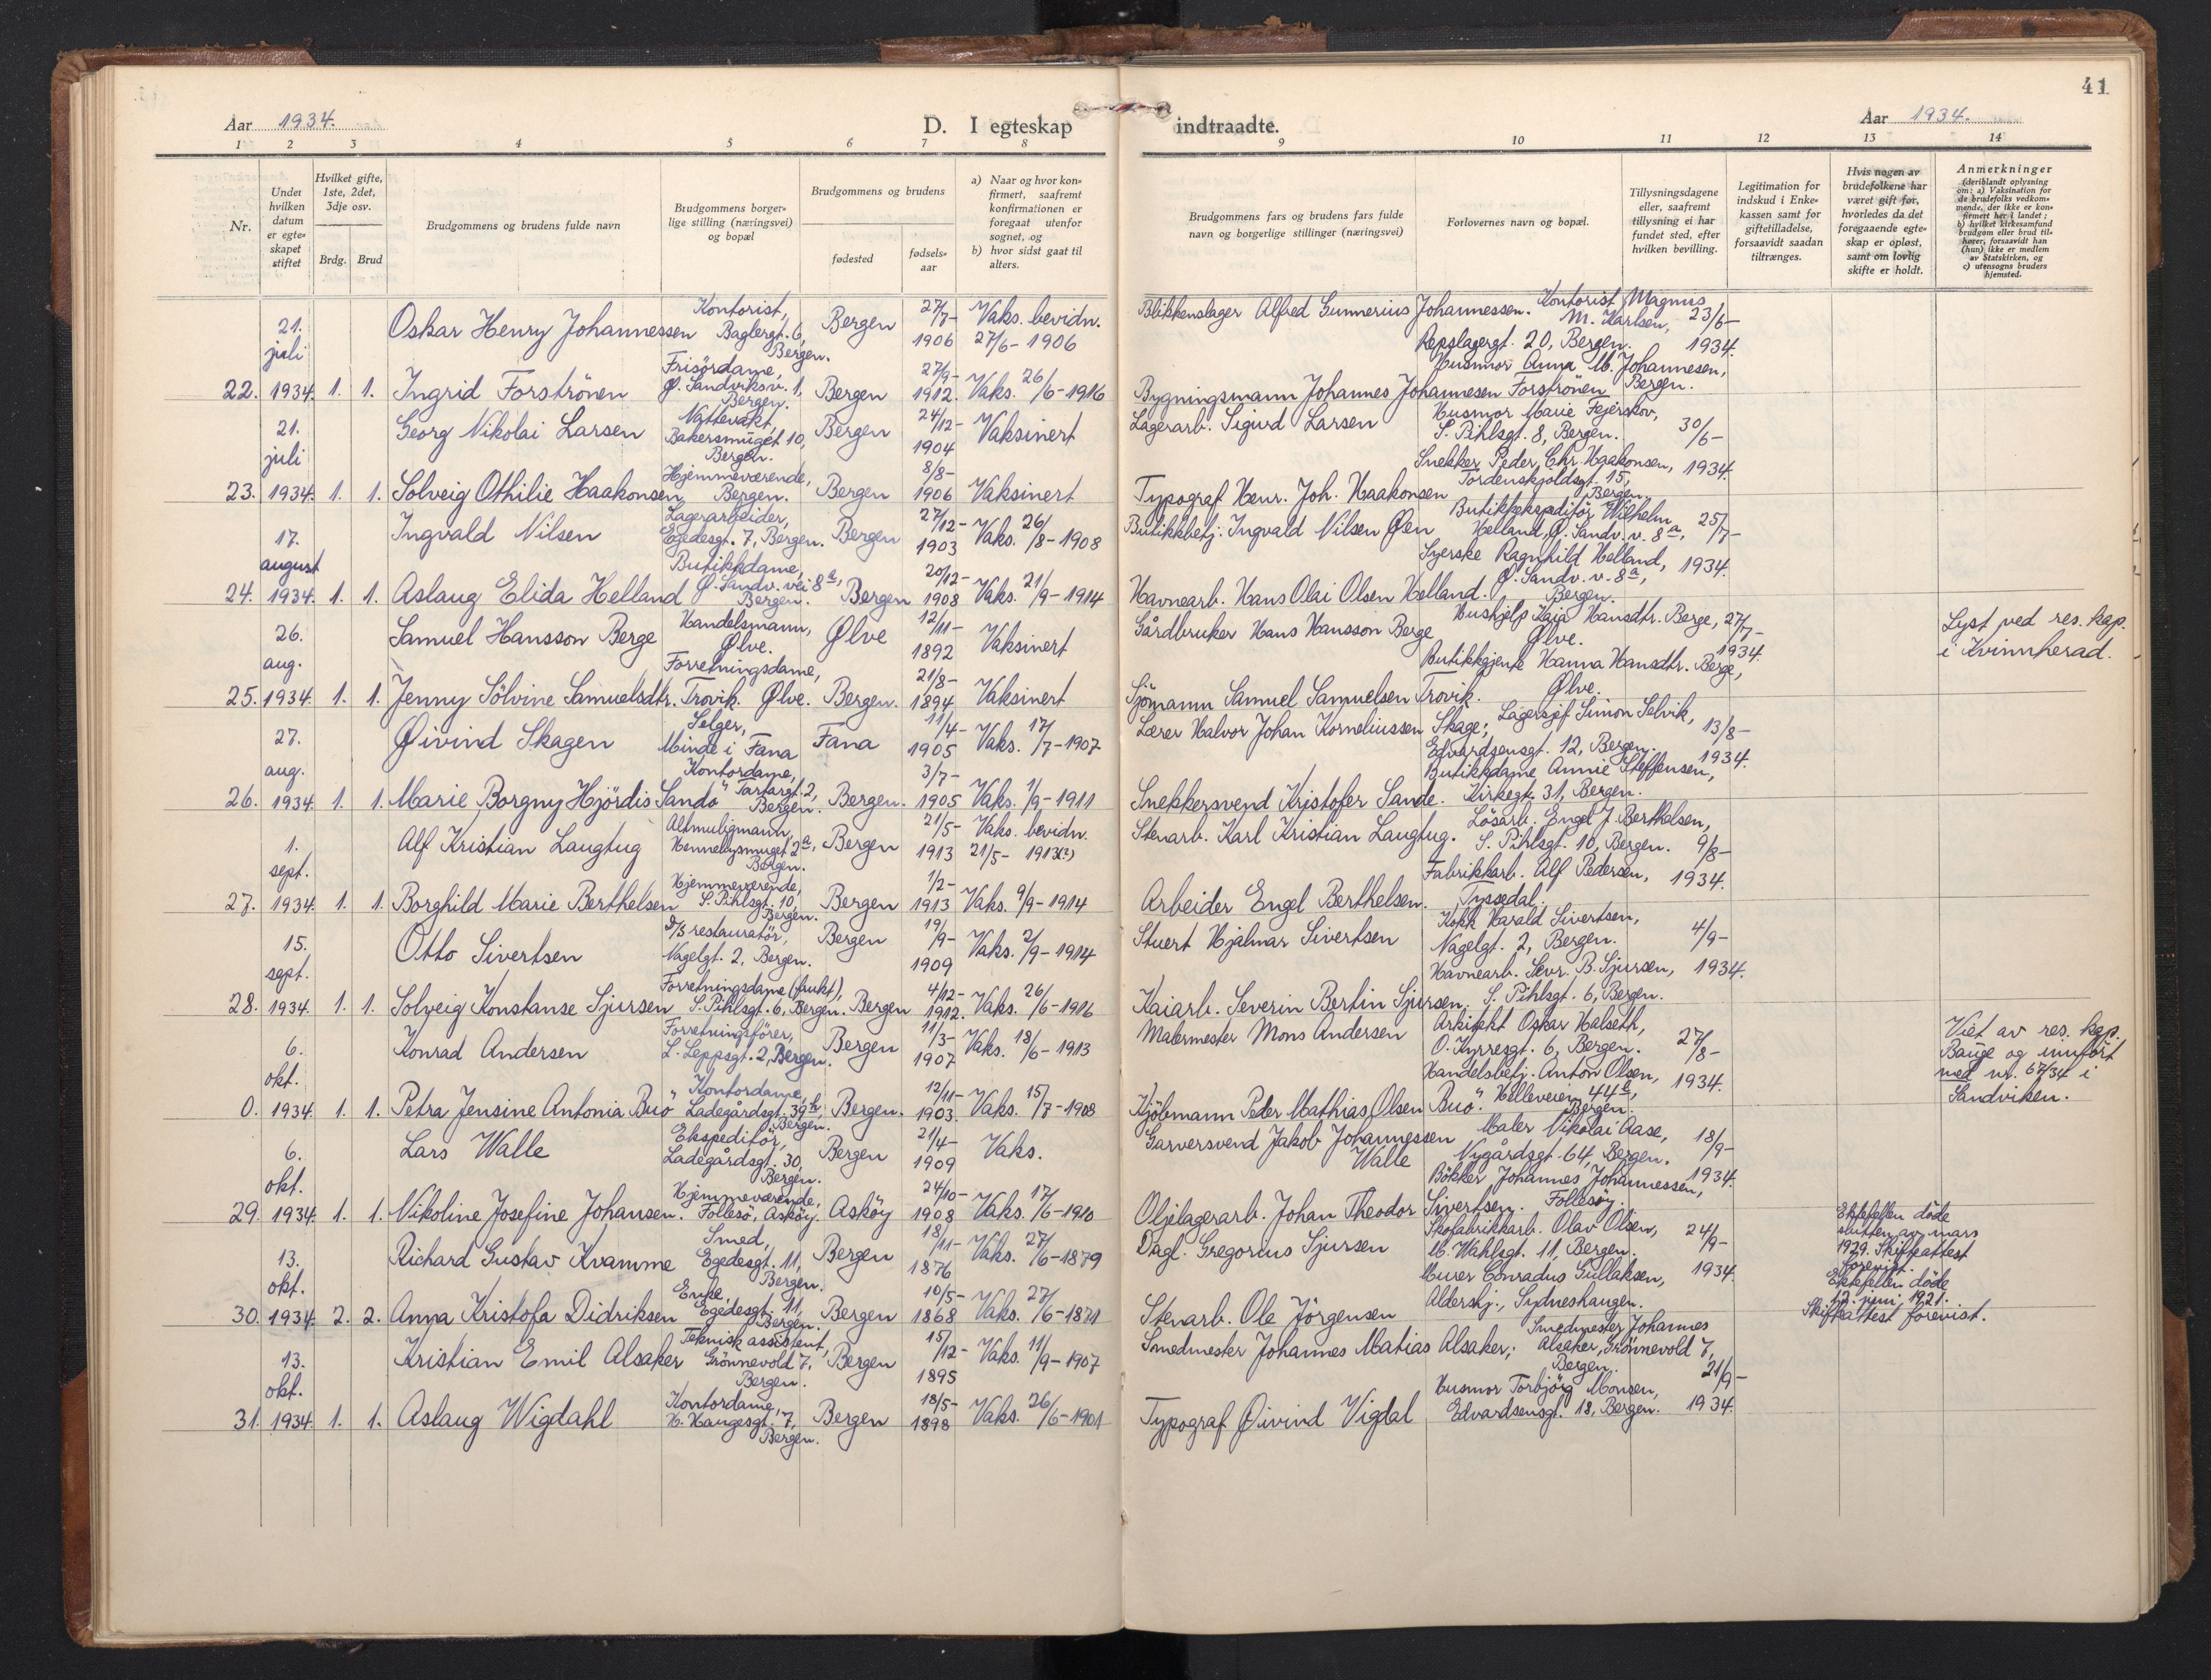 41
Aar 1934.
D. I egteskap
indtraadte.
Aar 1934.
1 2 3 4 5 6 7 8 9 10 11 12 13 14
Nr.
Under hvilken datum er egteskapet stiftet
Hvilket gifte, 1ste, 2det, 3dje osv.
Brdg. Brud
Brudgommens og brudens fulde navn
Brudgommens borgerlige stilling (næringsvei) og bopæl
Brudgommens og brudens
fødested
fødselsaar
a) Naar og hvor konfirmert, saafremt konfirmationen er foregaat utenfor sognet, og
b) hvor sidst gaat til alters.
Brudgommens fars og brudens fars fulde navn og borgerlige stillinger (næringsvei)
Forlovernes navn og bopæl.
Tillysningsdagene eller, saafremt tillysning ei har fundet sted, efter hvilken bevilling.
Legitimation for indskud i Enkekassen samt for giftetilladelse, forsaavidt saadan tiltrænges.
Hvis nogen av brudefolkene har været gift før, hvorledes da det foregaaende egteskap er opløst, samt om lovlig skifte er holdt.
Anmerkninger
(deriblandt oplysning om: a) Vaksination for de brudefolks vedkommende, der ikke er konfirmert her i landet; b) hvilket kirkesamfund brudgom eller brud tilhører, forsaavidt han (hun) ikke er medlem av Statskirken, og c) utensogns bruders hjemsted.
22. 21. juli 1934. 1. 1.
Oskar Henry Johannessen Kontorist, Baglergt. 6, Bergen. Bergen 27/7- 1906 Vaks. bevidn. 27/6-1906
Blikkenslager Alfred Gunnerius Johannessen. Kontorist Magnus M. Karlsen, Repslagergt. 20, Bergen. 23/6- 1934.
Ingrid Forströnen Frisördame, Ø. Sandviksv. 1, Bergen. Bergen 27/9- 1912. Vaks. 26/6-1916
Bygningsmann Johannes Johannesen Forströnen Husmor Anna M. Johannesen, Bergen.
23. 21. juli 1934. 1. 1.
Georg Nikolai Larsen Nattevakt, Bakersmuget 10, Bergen. Bergen 24/12- 1904 Vaksinert
Lagerarb. Sigurd Larsen Husmor Marie Fejerskov, S. Pihlsgt. 8, Bergen. 30/6- 1934.
Solveig Othilie Haakonsen Hjemmeværende, Bergen. Bergen 8/8- 1906 Vaksinert
Typograf Henr. Joh. Haakonsen Snekker Peder Chr. Haakonsen, Tordenskjoldsgt. 15, Bergen.
24. 17. august 1934. 1. 1.
Ingvald Nilsen Lagerarbeider, Egedesgt. 7, Bergen. Bergen 27/12- 1903 Vaks. 26/8-1908
Butikkbetj. Ingvald Nilsen Øen Butikkekspeditör Wilhelm Helland, Ø. Sandv. v. 8a, 25/7- 1934.
Aslaug Elida Helland Butikkdame, Ø. Sandv. vei 8a, Bergen. Bergen 20/12- 1908 Vaks. 21/9-1914
Havnearb. Hans Olai Olsen Helland. Syerske Ragnhild Helland, Ø. Sandv. v. 8a, Bergen.
25. 26. aug. 1934. 1. 1.
Samuel Hansson Berge Handelsmann, Ølve. Ølve 12/11- 1892 Vaksinert
Gårdbruker Hans Hansson Berge Hushjelp Kaia Hansdtr. Berge, Ølve. 27/7- 1934. Lyst ved res. kap. i Kvinnherad.
Jenny Sölvine Samuelsdtr. Trovik. Forretningsdame, Ølve. Bergen. 21/8- 1894 Vaksinert
Sjömann Samuel Samuelsen Trovik. Butikkgjente Hanna Hansdtr. Berge, Ølve.
26. 27. aug. 1934. 1. 1.
Øivind Skagen Selger, Minde i Fana Fana 11/4- 1905 Vaks. 17/7-1907
Lærer Halvor Johan Korneliussen Skage; Lagersjef Simon Selvik, Edvardsensgt. 12, Bergen. 13/8- 1934.
Marie Borgny Hjördis Sande Kontordame, Tartargt. 2, Bergen. Bergen. 3/7- 1905 Vaks. 1/9-1911
Snekkersvend Kristofer Sande. Butikkdame Annie Steffensen, Kirkegt. 31, Bergen.
27. 1. sept. 1934. 1. 1.
Alf Kristian Laugtug Altmuligmann, Hennebysmuget 2a, Bergen. Bergen 21/5- 1913 Vaks. bevidn. 21/5-1913(?)
Stenarb. Karl Kristian Laugtug. Lösarb. Engel J. Berthelsen, S. Pihlsgt. 10, Bergen. 9/8- 1934.
Borghild Marie Berthelsen Hjemmeværende, S. Pihlsgt. 10, Bergen. Bergen 1/2- 1913 Vaks. 9/9-1914
Arbeider Engel Berthelsen. Fabrikkarb. Alf Pedersen, Tyssedal.
28. 15. sept. 1934. 1. 1.
Otto Sivertsen D/S restauratör, Nagelgt. 2, Bergen. Bergen 19/9- 1909 Vaks. 2/9-1914
Stuert Hjalmar Sivertsen Kokk Harald Sivertsen, Nagelgt. 2, Bergen. 4/9- 1934.
Solveig Konstanse Sjursen Forretningsdame (frukt), S. Pihlsgt. 6, Bergen. Bergen 4/12- 1912. Vaks. 26/6-1916
Kaiarb. Severin Bertin Sjursen. Havnearb. Sevr. B. Sjursen, S. Pihlsgt. 6, Bergen.
0. 6. okt. 1934. 1. 1.
Konrad Andersen Forretningsförer, L. Leppsgt. 2, Bergen. Bergen 11/3- 1907 Vaks. 18/6-1913
Malermester Mons Andersen Arkitekt Oskar Halseth, O. Kyrresgt. 6, Bergen. 27/8- 1934. Viet av res. kap. Bauge og innfört med nr. 67/34 i Sandviken.
Petra Jensine Antonia Buo Kontordame, Ladegårdsgt. 39b, Bergen. Bergen. 12/11- 1903. Vaks. 15/7-1908
Kjöbmann Peder Mathias Olsen Buo. Handelsbetj. Anton Olsen, Helleveien 44b, Bergen.
29. 6. okt. 1934. 1. 1.
Lars Walle Ekspeditör, Ladegårdsgt. 30, Bergen. Bergen 21/4- 1909 Vaks.
Garversvend Jakob Johannessen Walle Maler Nikolai Aase, Nygårdsgt. 64, Bergen. 18/9- 1934.
Nikoline Josefine Johansen. Hjemmeværende, Follesö, Asköy. Asköy 24/10- 1908 Vaks. 17/6-1910
Oljelagerarb. Johan Theodor Sivertsen. Bökker Johannes Johannessen, Follesöy.
30. 13. okt. 1934. 2. 2.
Richard Gustav Kvamme Smed, Egedesgt. 11, Bergen. Bergen 18/11- 1876 Vaks. 27/6-1879
Dagl. Gregorius Sjursen Skofabrikkarb. Olav Olsen, M. Wahlsgt. 11, Bergen. 24/9- 1934. Ektefellen döde slutten av mars 1929. Skifteattest forevist.
Anna Kristofa Didriksen Enke, Egedesgt. 11, Bergen. Bergen 10/5- 1868 Vaks. 27/6-1871
Stenarb. Ole Jörgensen Murer Conradus Gullaksen, Aldershj., Sydneshaugen. Ektefellen döde 12. juni 1921. Skifteattest forevist.
31. 13. okt. 1934. 1. 1.
Kristian Emil Alsaker Teknisk assistent, Grönnevold 7, Bergen. Bergen 15/12- 1895 Vaks. 11/9-1907
Smedmester Johannes Matias Alsaker; Smedmester Johannes Alsaker, Grönnevold 7, Bergen. 21/9- 1934.
Aslaug Wigdahl Kontordame, H. Haugesgt. 7, Bergen. Bergen 18/5- 1898 Vaks. 26/6-1901
Typograf Øivind Vigdal Husmor Torbjörg Monsen, Edvardsensgt. 18, Bergen.